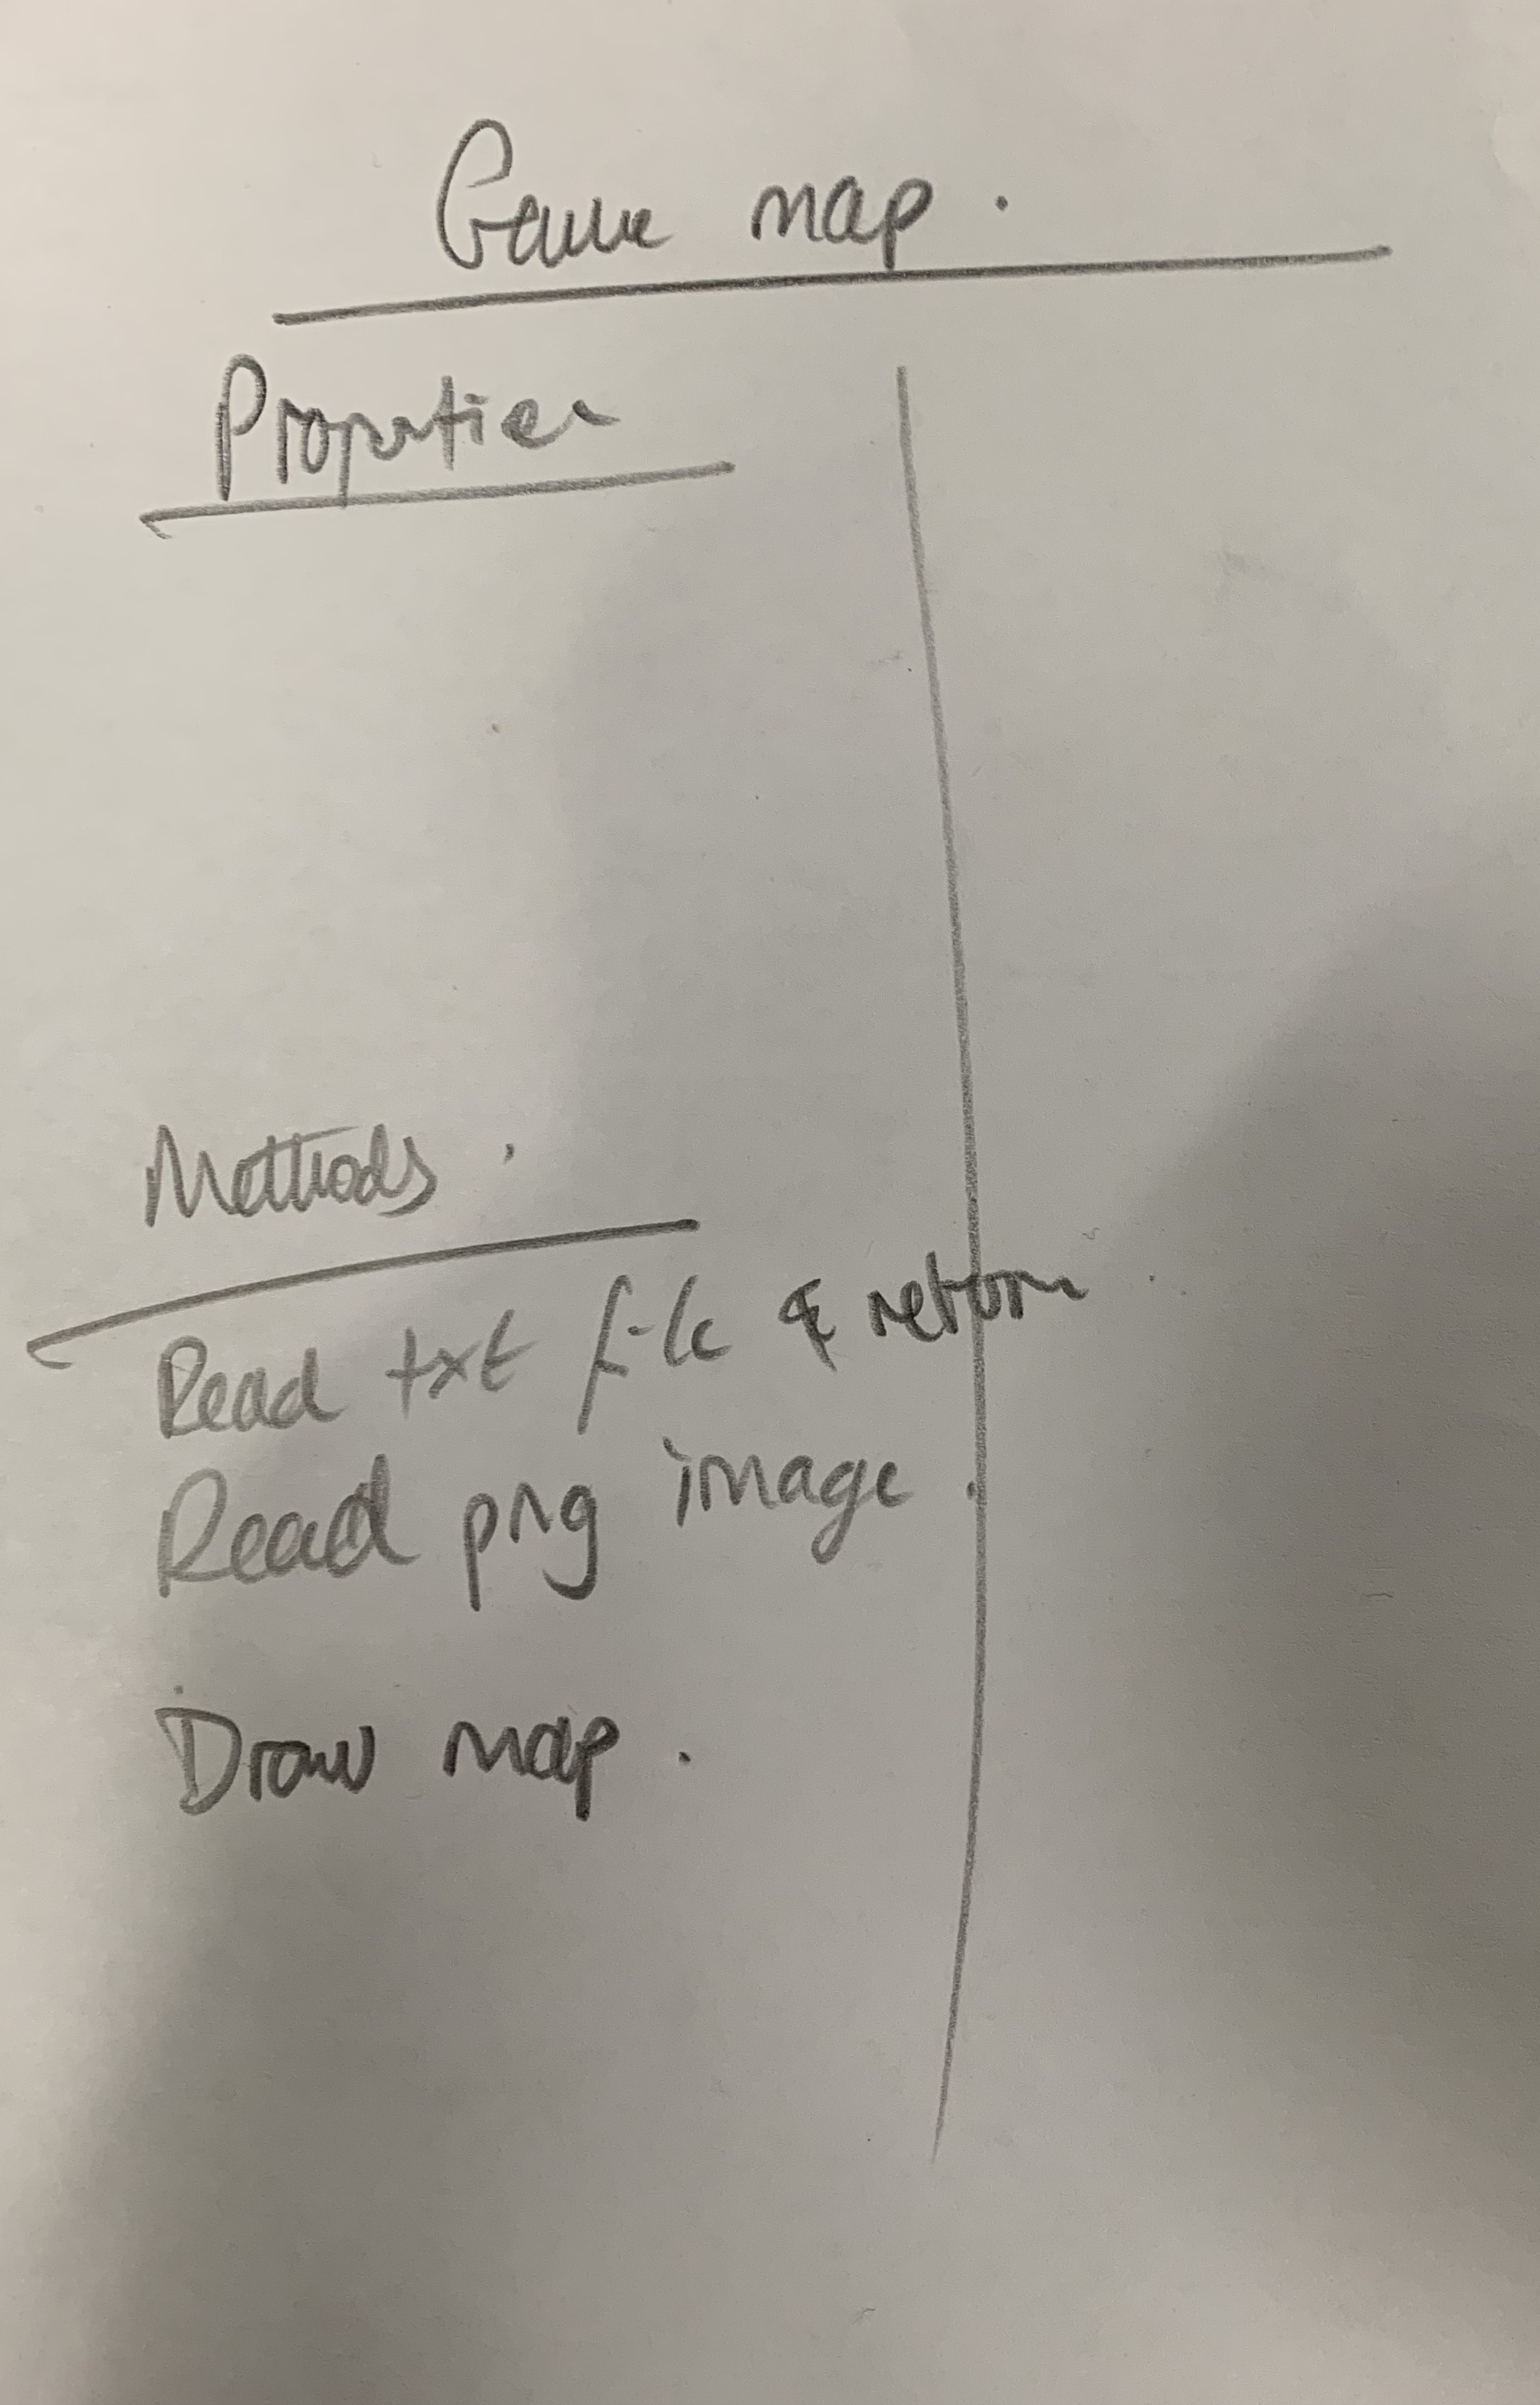 Game map.
Properties
Methods.
Read txt file & return
Read png image.
Draw map.